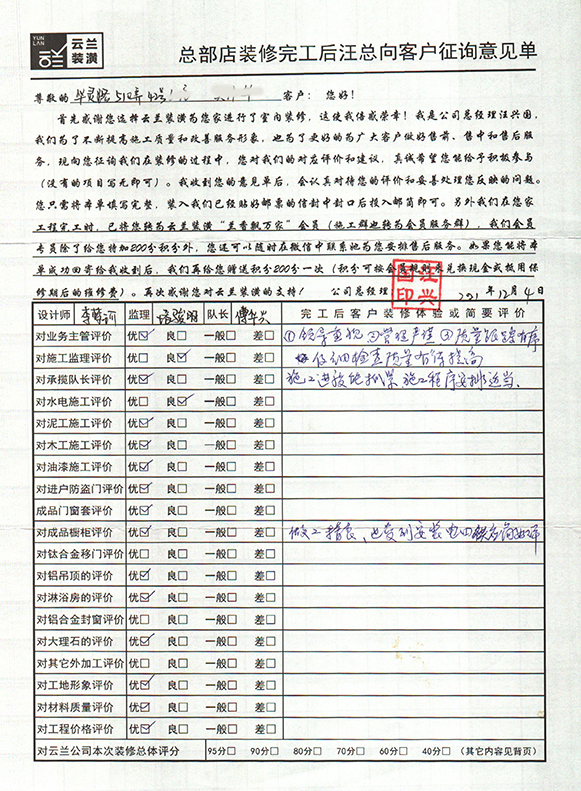 YUN LAN 云兰装潢
总部店装修完工后汪总向客户征询意见单
尊敬的 华灵路510弄 客户：您好！
首先感谢您选择云兰装潢为您家进行了室内装修，这使我倍感荣幸！我是公司总经理汪兴国，
我们为了不断提高施工质量和改善服务形象，也为了更好的为广大客户做好售前、售中和售后服
务，现向您征询我们在装修的过程中，您对我们的对应评价和建议，真诚希望您能给予积极参与
（没有的项目写无即可）。我收到您的意见单后，会认真对待您的评价和妥善处理您反映的问题。
您只需将本单填写完整，装入我们已经贴好邮票的信封中封口后投入邮筒即可。另外我们在您家
工程完工时，已将您转为云兰装潢“兰香飘万家”会员（施工群也转为会员服务群），我们会员
专员除了给您特加200分积分外，您还可以随时在微信中联系她为您安排售后服务。如果您能将本
单成功回寄给我收到后，我们再给您赠送积分200分一次（积分可按会员规则来兑换现金或抵用保
修期后的维修费）。再次感谢您对云兰装潢的支持！ 公司总经理 12月4日
设计师 监理 队长 完工后客户装修体验或简要评价
对业务主管评价 优☑ 良□ 一般□ 差□ ①领导重视 ②管理严谨 ③质量跟踪有序
对施工监理评价 优□ 良☑ 一般□ 差□ 仔细检查质量有待提高
对承揽队长评价 优☑ 良□ 一般□ 差□ 施工进度能抓紧 施工程序安排适当、
对水电施工评价 优□ 良☑ 一般□ 差□
对泥工施工评价 优☑ 良□ 一般□ 差□
对木工施工评价 优☑ 良□ 一般□ 差□
对油漆施工评价 优☑ 良□ 一般□ 差□
对进户防盗门评价 优☑ 良□ 一般□ 差□
成品门窗套评价 优☑ 良□ 一般□ 差□
对成品橱柜评价 优☑ 良□ 一般□ 差□ 做工精良、
对钛合金移门评价 优□ 良□ 一般□ 差□
对铝吊顶的评价 优☑ 良□ 一般□ 差□
对淋浴房的评价 优☑ 良□ 一般□ 差□
对铝合金封窗评价 优□ 良□ 一般□ 差□
对大理石的评价 优☑ 良□ 一般□ 差□
对其它外加工评价 优□ 良□ 一般□ 差□
对工地形象评价 优☑ 良□ 一般□ 差□
对材料质量评价 优☑ 良□ 一般□ 差□
对工程价格评价 优☑ 良□ 一般□ 差□
对云兰公司本次装修总体评分 95分□ 90分□ 80分□ 70分□ 60分□ 40分□ （其它内容见背页）